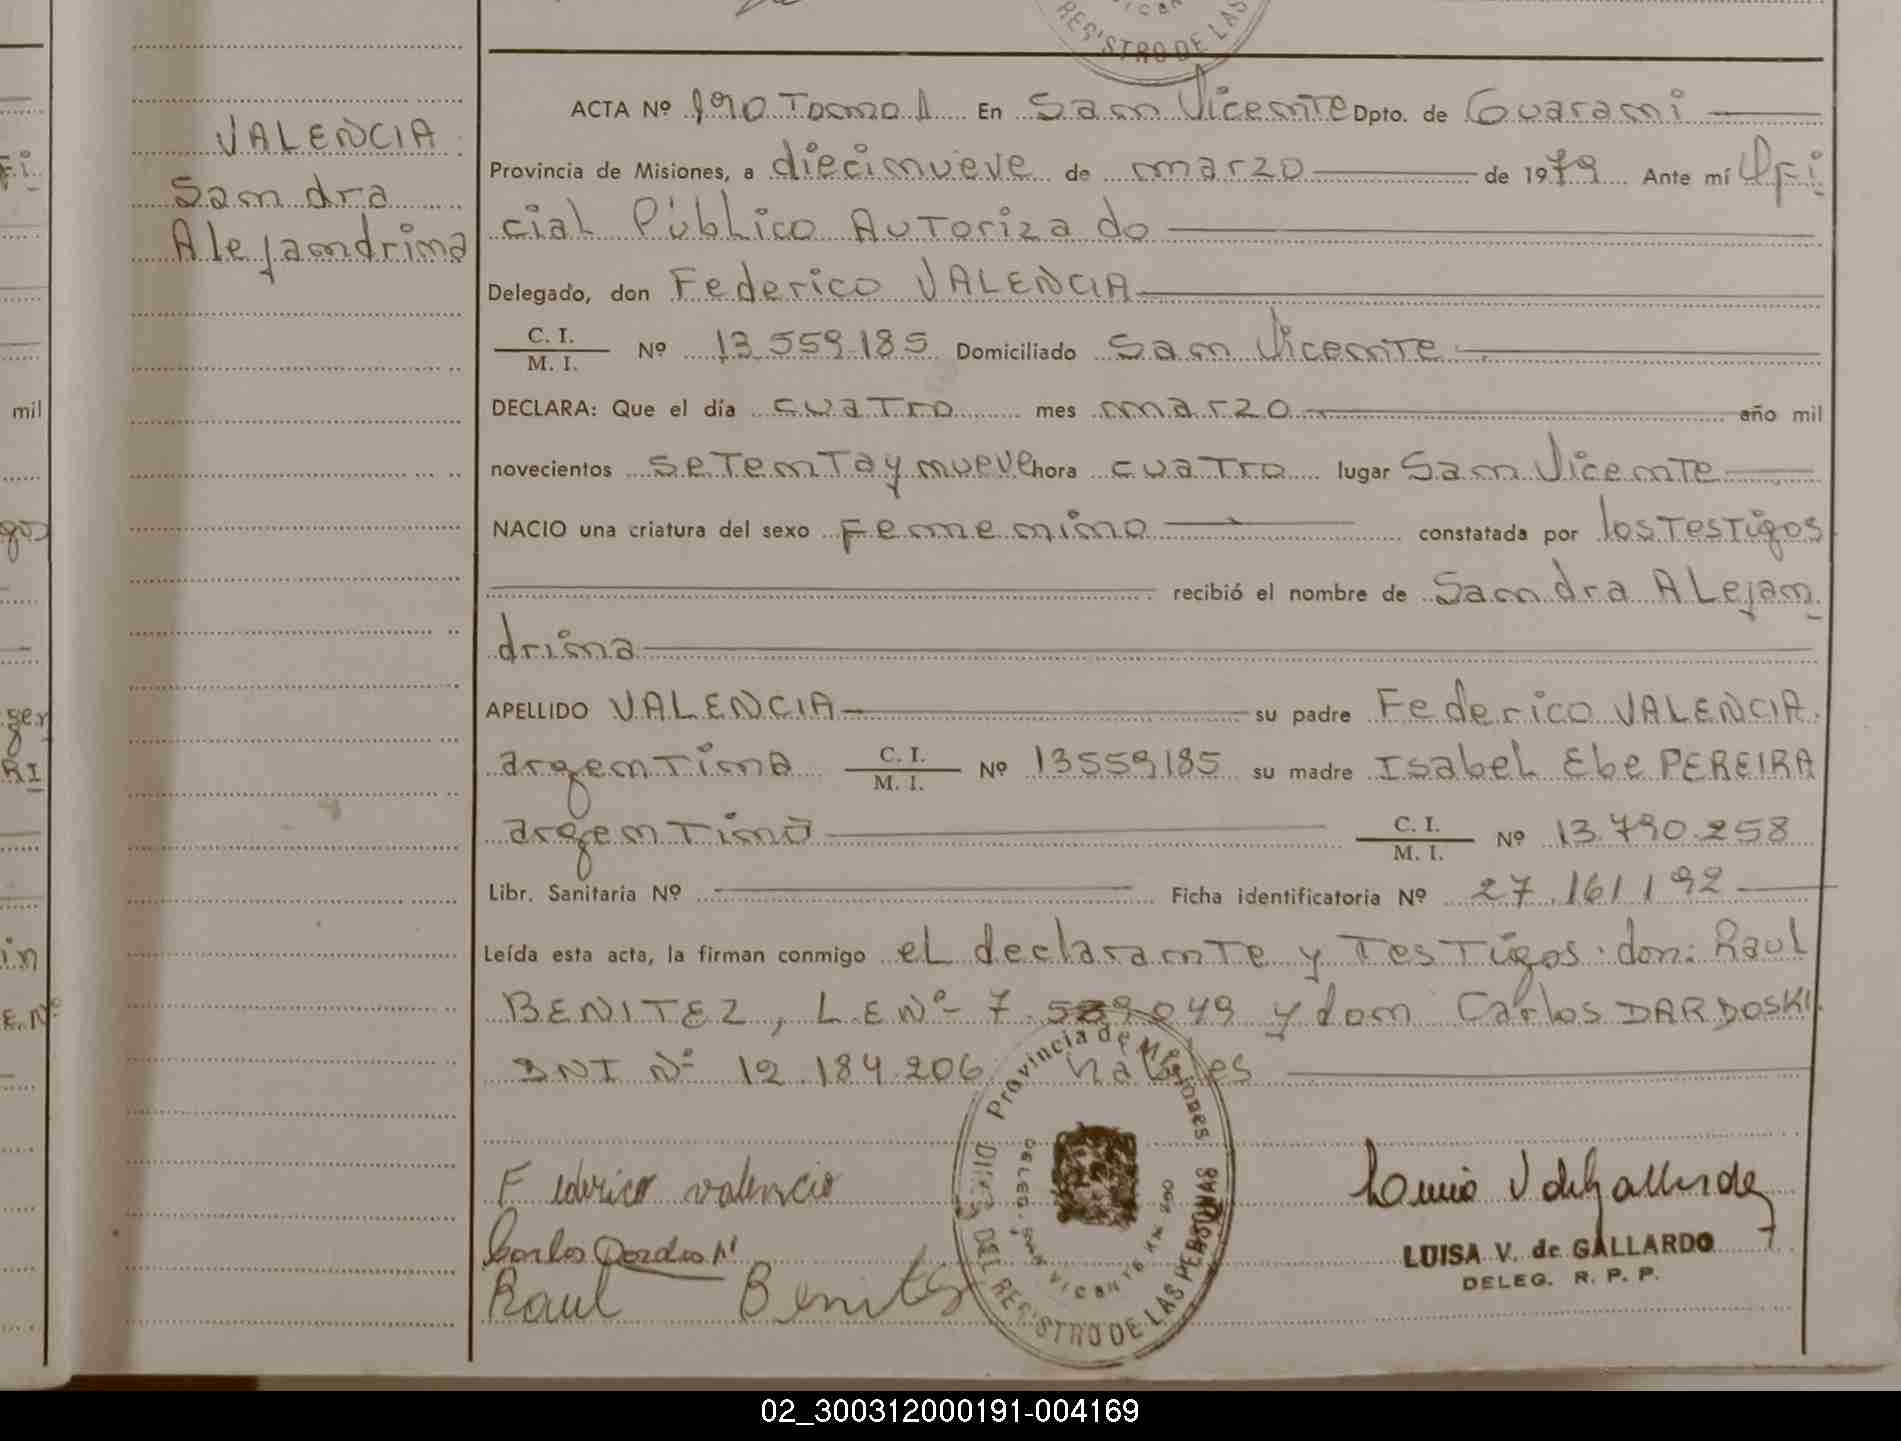 VALENCIA
Sandra
Alejandrina
ACTA Nº 190 Tomo 1 En San Vicente Dpto. de Guarani
Provincia de Misiones, a diecinueve de marzo de 1979 Ante mí Ofi
cial Público Autorizado
Delegado, don Federico VALENCIA
C. I.
M. I. Nº 13.559.185 Domiciliado San Vicente
DECLARA: Que el día cuatro mes marzo año mil
novecientos setenta y nueve hora cuatro lugar San Vicente
NACIO una criatura del sexo femenino constatada por los Testigos
recibió el nombre de Sandra Alejan
drina
APELLIDO VALENCIA su padre Federico VALENCIA.
argentina C. I.
M. I. Nº 13559185 su madre Isabel Ebe PEREIRA
argentina C. I.
M. I. Nº 13.790.258
Libr. Sanitaria Nº Ficha identificatoria Nº 27.161.192
Leída esta acta, la firman conmigo el declarante y Testigos: don: Raul
BENITEZ, L.E.Nº 7. 049 y don Carlos DARDOSKI.
DNI Nº 12.184.206 habiles
Provincia de Misiones
DELEG. SAN VICENTE
DEL REGISTRO DE LAS PERSONAS
Federico valencia
Carlos
Raul Benitez
LUISA V. de GALLARDO
DELEG. R. P. P.
REGISTRO DE LAS
mil
02_300312000191-004169